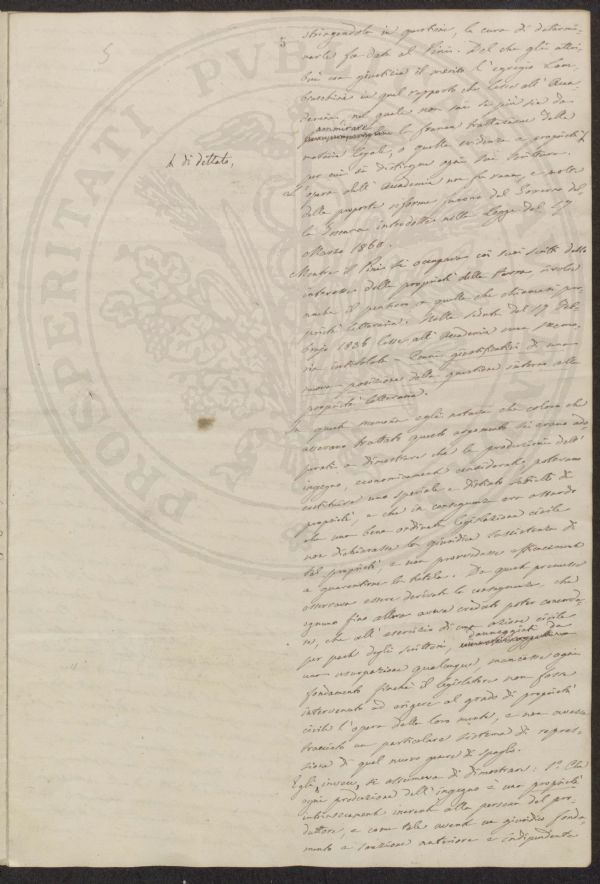 5
5
stringendola in questione, la cura di determi-
narle fu data al Pini. Del che gli attri-
buì con giustizia il merito l'egregio Lam-
bruschini in quel rapporto che lesse all'Acca-
demia, nel quale non sai se più sia da
ammirare
la franca trattazione della
materia legale, o quella evidenza e proprietà
per cui si distingue ogni sua scrittura.
di dettato,
opera dell'Accademia non fu vana, e molte
delle proposte riforme furono dal Governo del-
la Toscana introdotte nella Legge del 17
Marzo 1860.
Mentre il Pini si occupava coi suoi scritti dello
interesse della proprietà della Terra, rivolse
anche il pensiero a quella che chiamasi pro-
prietà letteraria. Nella seduta del 17 Feb-
brajo 1856 lesse all'Accademia una Memo-
ria intitolata - Cenni giustificativi di una
nuova posizione della questione intorno alla
proprietà letteraria.
In questa memoria egli notava che coloro che
avevano trattato questo argomento si erano ado-
prati a dimostrare che le produzioni dell'
ingegno, economicamente considerate, potevano
costituire uno speciale e distinto subietto di
proprietà, e che in conseguenza era assurdo
che una bene ordinata legislazione civile
non dichiarasse la giuridica sussistenza di
tal proprietà, e non provvedesse efficacemente
a guarentirne la tutela. Da queste premesse
osservava essere derivata la conseguenza, che
ognuno fino allora aveva creduto poter concorda-
re, che all'esercizio di una azione civile
per parte degli scrittori, danneggiati da
una usurpazione qualunque, mancasse ogni
fondamento finché il legislatore non fosse
intervenuto ad erigere al grado di proprietà
civile l'opera della loro mente, e non avesse
tracciato un particolare sistema di repres-
sione di quel nuovo genere di spoglio.
Egli invece, si assumeva di dimostrare: 1°. Che
ogni produzione dell'ingegno è una proprietà
intrinsecamente inerente alla persona del pro-
duttore, e come tale avente un giuridico fonda-
mento e sanzione anteriore e indipendente
PROSPERITATI PVBLICAE